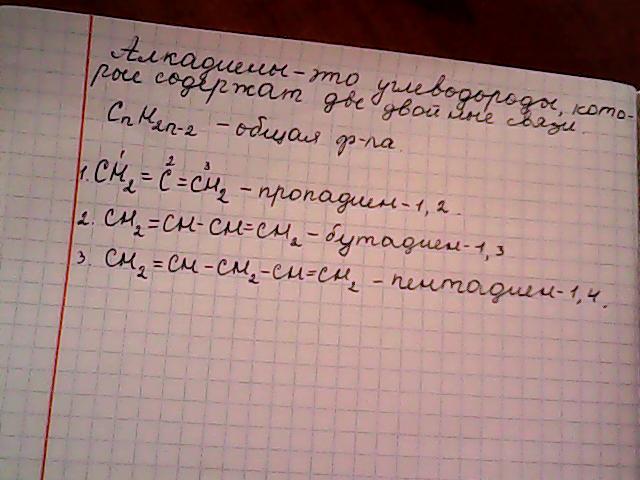 Алкадиены - это углеводороды, кото-
рые содержат две двойные связи.
CnH2n-2 - общая ф-ла.
1. CH2 = C = CH2 - пропадиен-1,2.
1 2 3
2. CH2 = CH - CH = CH2 - бутадиен-1,3
3. CH2 = CH - CH2 - CH = CH2 - пентадиен-1,4.